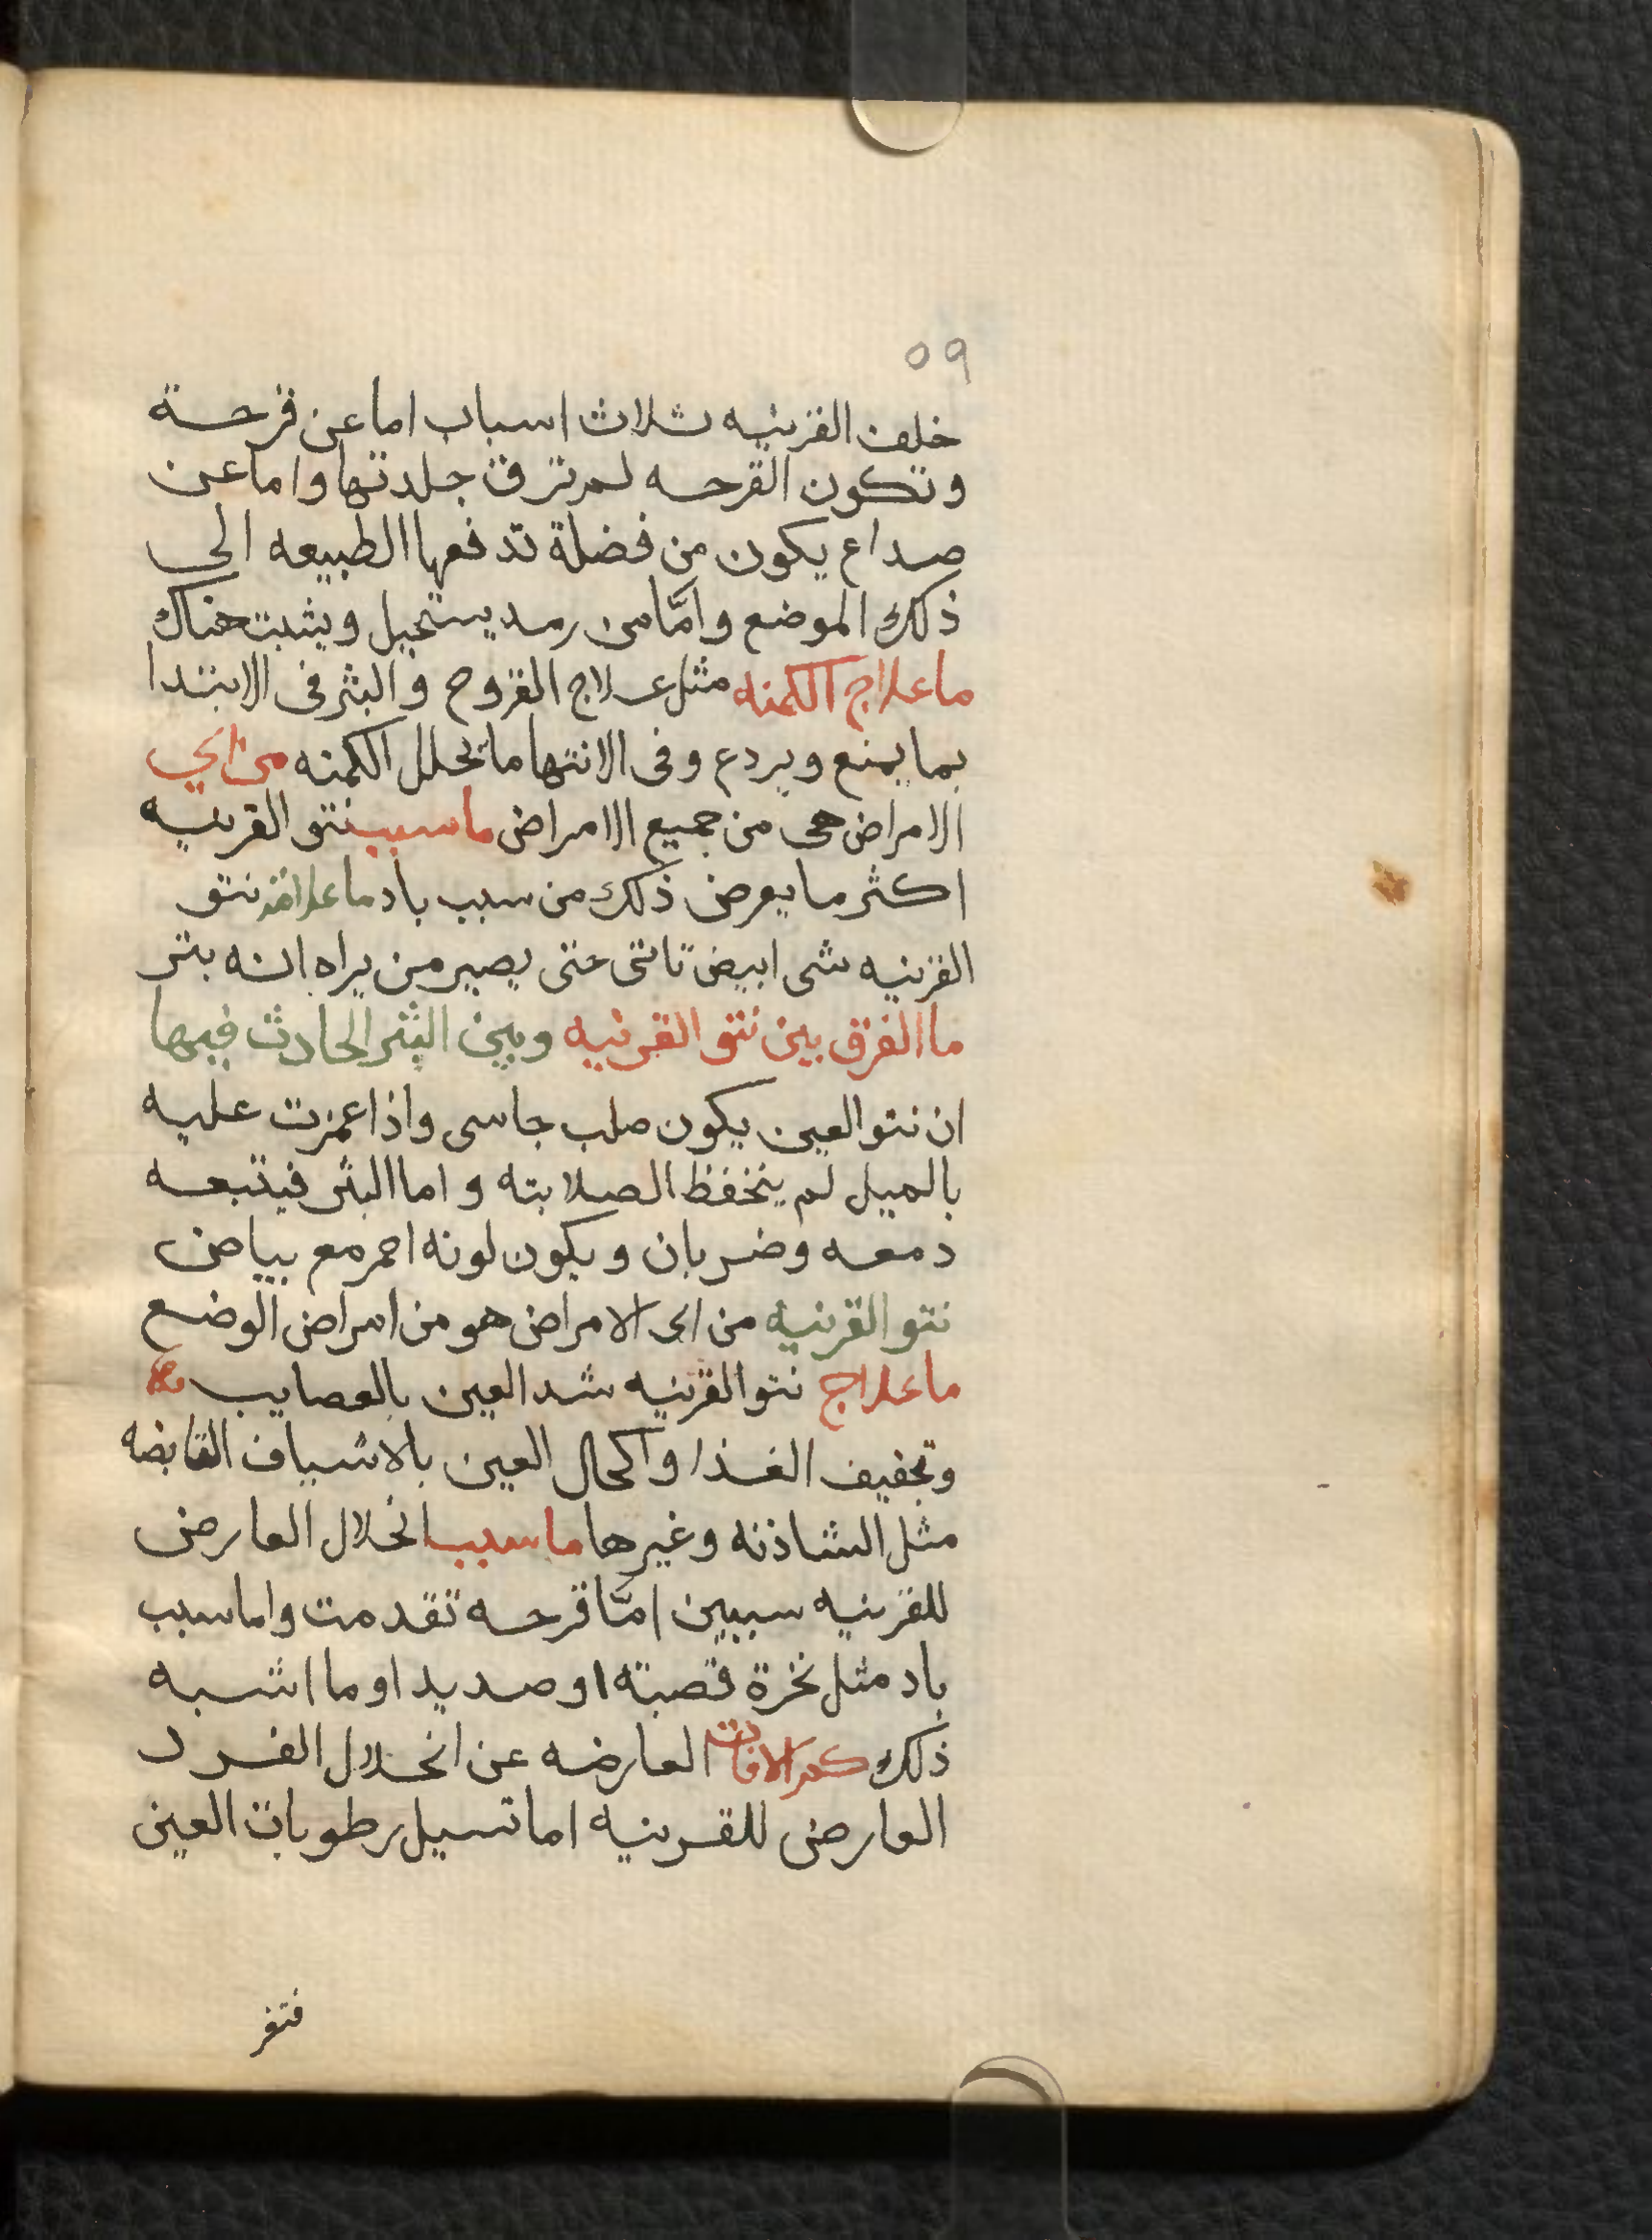 ٥٩
خلف القرنيه ثلاث اسباب اما عن قرحة
وتكون القرحه لم ترق جلدتها واما عن
صداع يكون من فضلة تدفعها الطبيعه الى
ذلك الموضع وامّا من رمد يستحيل ويثبت هناك
ما علاج الكمنه مثل علاج القروح والبثر فى الابتدا
بما يمنع ويردع وفى الانتها ما تحلل الكمنه من اي
الامراض هى من جميع الامراض ما سبب نتو القرنيه
اكثر ما يعرض ذلك من سبب باد ما علامة نتو
القرنيه شى ابيض ناتى حتى يصير من يراه انه بثر
ما الفرق بين نتو القرنيه وبين البثر الحادث فيها
ان نتو العين يكون صلب جاسى واذا غمزت عليه
بالميل لم ينخفظ الصلابته واما البثر فيتبعه
دمعه وضربان ويكون لونه احمر مع بياض
نتو القرنيه من اى الامراض هو من امراض الوضع
ما علاج نتو القرنيه شد العين بالعصايب
وتجفيف الغذا واكحال العين بالاشياف القابضه
مثل الشاذنه وغيرها ما سبب انحلال العارض
للقرنيه سببين امّا قرحه تقدمت واما سبب
باد مثل نخرة قصبته او صديد او ما اشبه
ذلك كم الافات العارضه عن انحلال الفرد
العارض للقرنيه اما تسيل رطوبات العين
فتفر